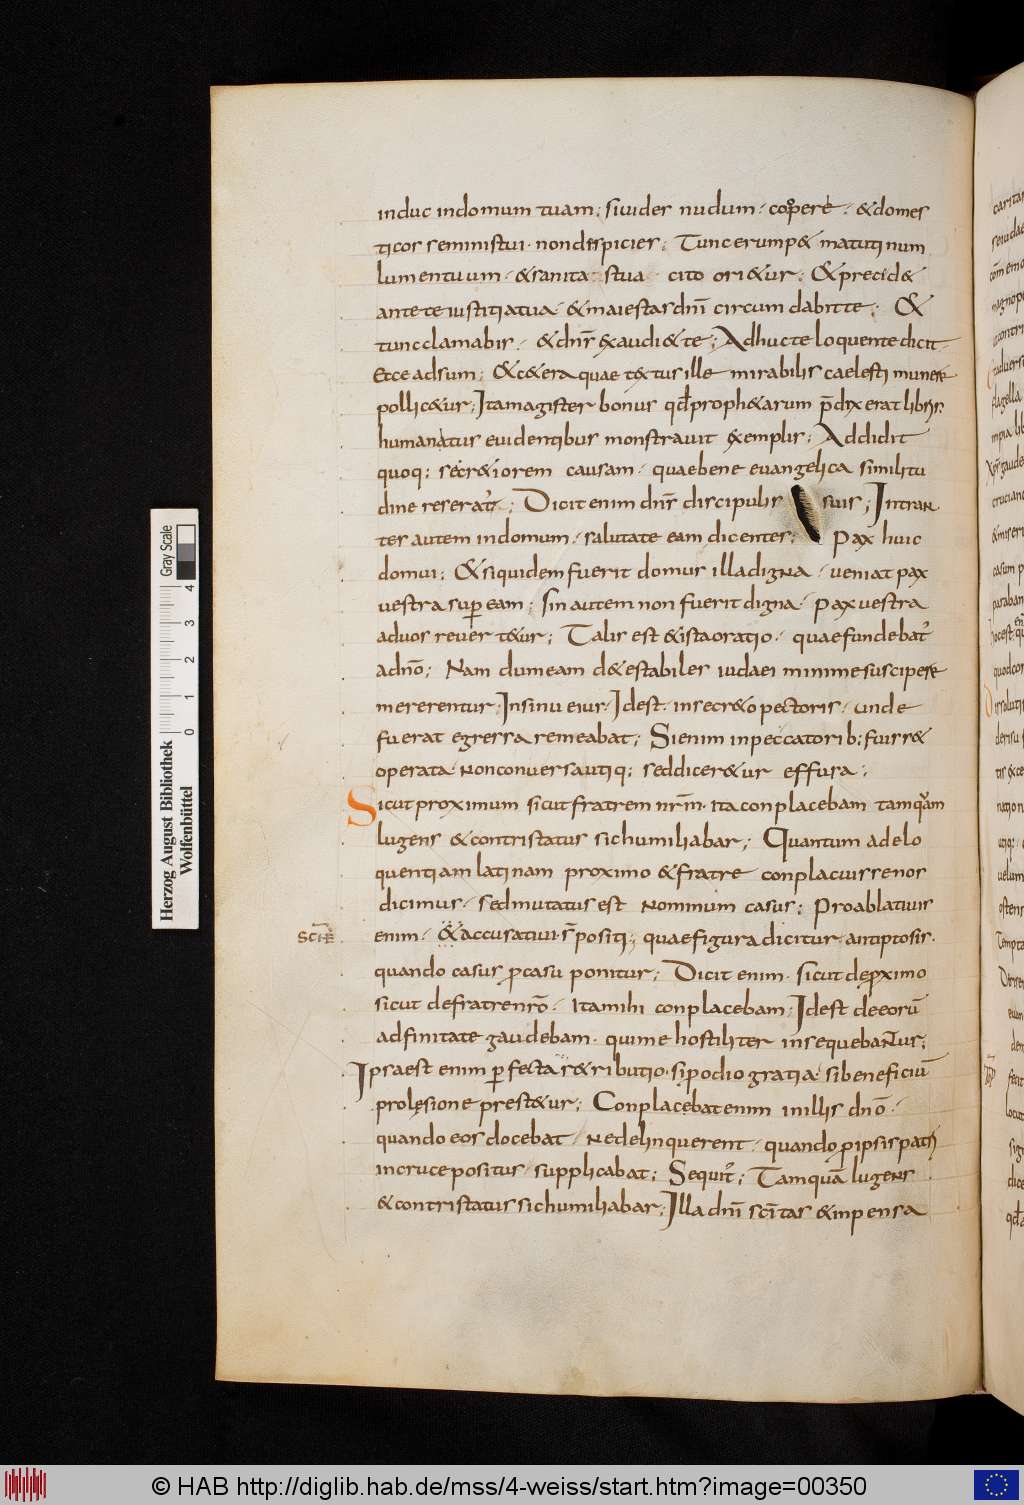 induc in domum tuam; si uider nudum · cooperi · & domes
ticos seminis tui · non despicies; Tunc erump& matutinum
lumen tuum · & sanitas tua cito ori&ur; & preced&
ante te iustitia tua · & maiestas dnī circumdabit te; &
tunc clamabis · & dns̄ exaudi& te; Adhuc te loquente dicit·
Ecce adsum; & c&era quae textus ille mirabilis caelesti munere
pollic&ur; Ita magister bonus qđ proph&arum p̄dixerat libris·
humanatus euidentibus monstrauit exemplis; Addidit
quoq; secr&iorem causam · quae bene euangelica similitu
dine reserat̉; Dicit enim dns̄ discipulis suis; Intran
tes autem in domum · salutate eam dicentes; Pax huic
domui; & siquidem fuerit domus illa digna · ueniat pax
uestra sup̱ eam; sin autem non fuerit digna · pax uestra
ad uos reuert&ur; Talis est & ista oratio · quae fundebat̉
ad dnō; Nam dum eam d&estabiles iudaei minime suscipere
mererentur · In sinu eius · Id est · in secr&o pectoris · unde
fuerat egressa remeabat; Si enim in peccatorib; fuiss&
operata · non conuersa utiq; sed dicer&ur effusa;
Sicut proximum sicut fratrem nrm̄ · ita conplacebam tamqủam
lugens & contristatus sic humiliabar; Quantum ad elo
quentiam latinam proximo & fratre conplacuisse nos
dicimus · sed mutatus est nominum casus; Pro ablatiuis
enim · & accusatiui s̄ positi; quae figura dicitur antiptosis·
SCHE
quando casus ꝓ casu ponitur; Dicit enim · sicut de ꝓximo
sicut de fratre nrō · ita mihi conplacebam; Id est de eorū
adfinitate gaudebam · qui me hostiliter insequebantur;
Ipsa est enim ꝑfecta r&ributio · si ꝓ odio gratia · si beneficiū
pro lęsione prest&ur; Conplacebat enim in illis dnō·
quando eos docebat · ne delinquerent · quando ꝓ ipsis patri
in cruce positus · supplicabat; Sequit̉; Tamquā lugens
& contristatus sic humiliabar; Illa dnī scītas & inpensa
Herzog August Bibliothek
Wolfenbüttel
0 1 2 3 4
Gray Scale
© HAB http://diglib.hab.de/mss/4-weiss/start.htm?image=00350